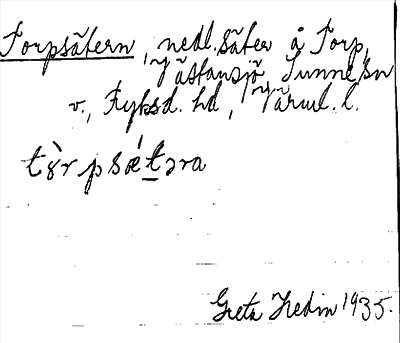 Torpsätern, nedl. säter å Torp,
Västansjö, Sunne sn
v., Fryksd. hd, Värml. l.
tòrpsǽtəra
Greta Hedin 1935.